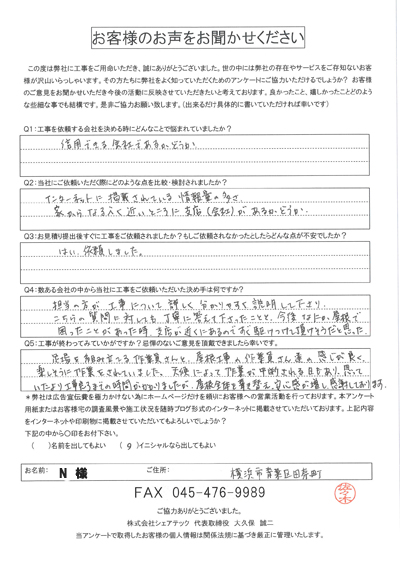 お客様のお声をお聞かせください
この度は弊社に工事をご用命いただき、誠にありがとうございました。世の中には弊社の存在やサービスをご存知ないお客様
が沢山いらっしゃいます。その方たちに弊社をよく知っていただくためのアンケートにご協力いただけるでしょうか? お客様
のご意見をお聞かせいただき今後の活動に反映させていただきたいと考えております。良かったこと、嬉しかったことどのよう
な些細な事でも結構です、是非ご協力お願い致します。(出来るだけ具体的に書いていただければ幸いです)
Q1:工事を依頼する会社を決める時にどんなことで悩まれていましたか?
信用できる会社であるかどうか
Q2:当社にご依頼いただく際にどのような点を比較・検討されましたか?
インターネットに掲載されている情報量の多さ、
家からなるべく近いところに支店(会社)があるかどうか.
Q3:お見積り提出後すぐに工事をご依頼されましたか?もしご依頼されなかったとしたらどんな点が不安でしたか?
はい、依頼しました。
Q4:数ある会社の中から当社に工事をご依頼いただいた決め手は何ですか?
担当の方が工事について詳しく分かりやすく説明して下さり、
こちらの質問に対しても、丁寧に答えて下さったことと、今後なにか屋根で
困ったことがあった時、支店が近くにあるのですぐ駆けつけて頂けそうだと思った.
Q5:工事が終わってみていかがですか?忌憚のないご意見を頂戴できましたら幸いです。
足場を組み立てる作業員さんと、屋根工事の作業員さん達の感じが良く、
楽しそうに作業をされていました。天候によって作業が中断される日もあり、思って
いたより工事完了までの時間がかかりましたが、屋根全体を葺き替え、安心感が増し、感謝しております.
*弊社は広告宣伝費を極力かけない為にホームページだけを頼りにお客様への営業活動を行っております。本アンケート
用紙またはお客様宅の調査風景や施工状況を随時ブログ形式のインターネットに掲載させていただいております。上記内容
をインターネットや印刷物に掲載させていただいてもよろしいでしょうか?
下記の中から〇印をお付け下さい。
( )名前を出してもよい (○)イニシャルなら出してもよい
お名前: N 様 ご住所: 横浜市青葉区田奈町
FAX 045-476-9989
佐々木
ご協力ありがとうございました。
株式会社シェアテック 代表取締役 大久保 誠二
当アンケートで取得したお客様の個人情報は関係法規に基づき厳正に管理いたします。